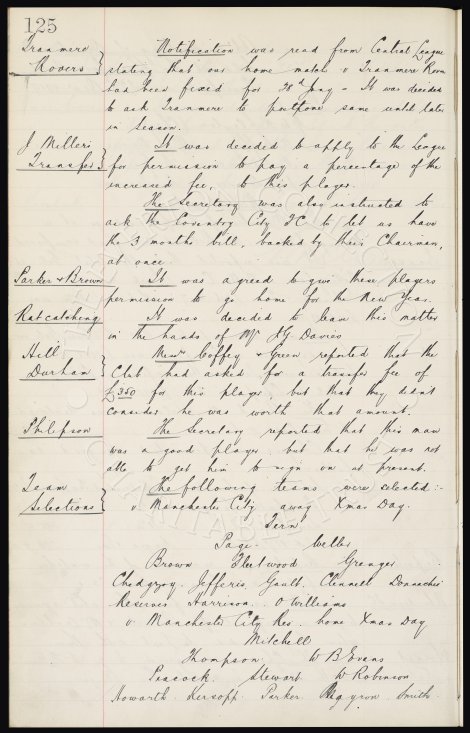 125
Tranmere Rovers
Notification was read from Central League
stating that our home match v Tranmere Rovers
had been fixed for 28th Jany - It was decided
to ask Tranmere to putpone same until later
in season.
J Miller's Transfer
It was decided to apply to the League
for permission to pay a percentage of the
increased fee, to this player.
The Secretary was also instructed to
ask the Coventry City FC to let us have
the 3 months bill, backed by their Chairman,
at once.
Parker & Brown
It was agreed to give these players
permission to go home for the New Year.
Ratcatching
It was decided to leave this matter
in the hands of Mr HG Davies
Hill Durham
Messrs Coffey & Green reported that the
Club had asked for a transfer fee of
£350 for this player but that they didn't
consider he was worth that amount.
Philipson
The Secretary reported that this man
was a good player but that he was not
able to get him to sign on at present.
Team Selections
The following teams were selected:-
v. Manchester City away Xmas Day.
Fern
Page Weller
Brown Fleetwood Grenyer
Chedgzoy. Jefferis Gault. Clennell Donnachie
Reserves Harrison. O Williams
v Manchester City Res. home Xmas Day
Mitchell
Thompson W B Evans
Peacock. Stewart W Robinson
Howarth Kirsopp Parker Smith